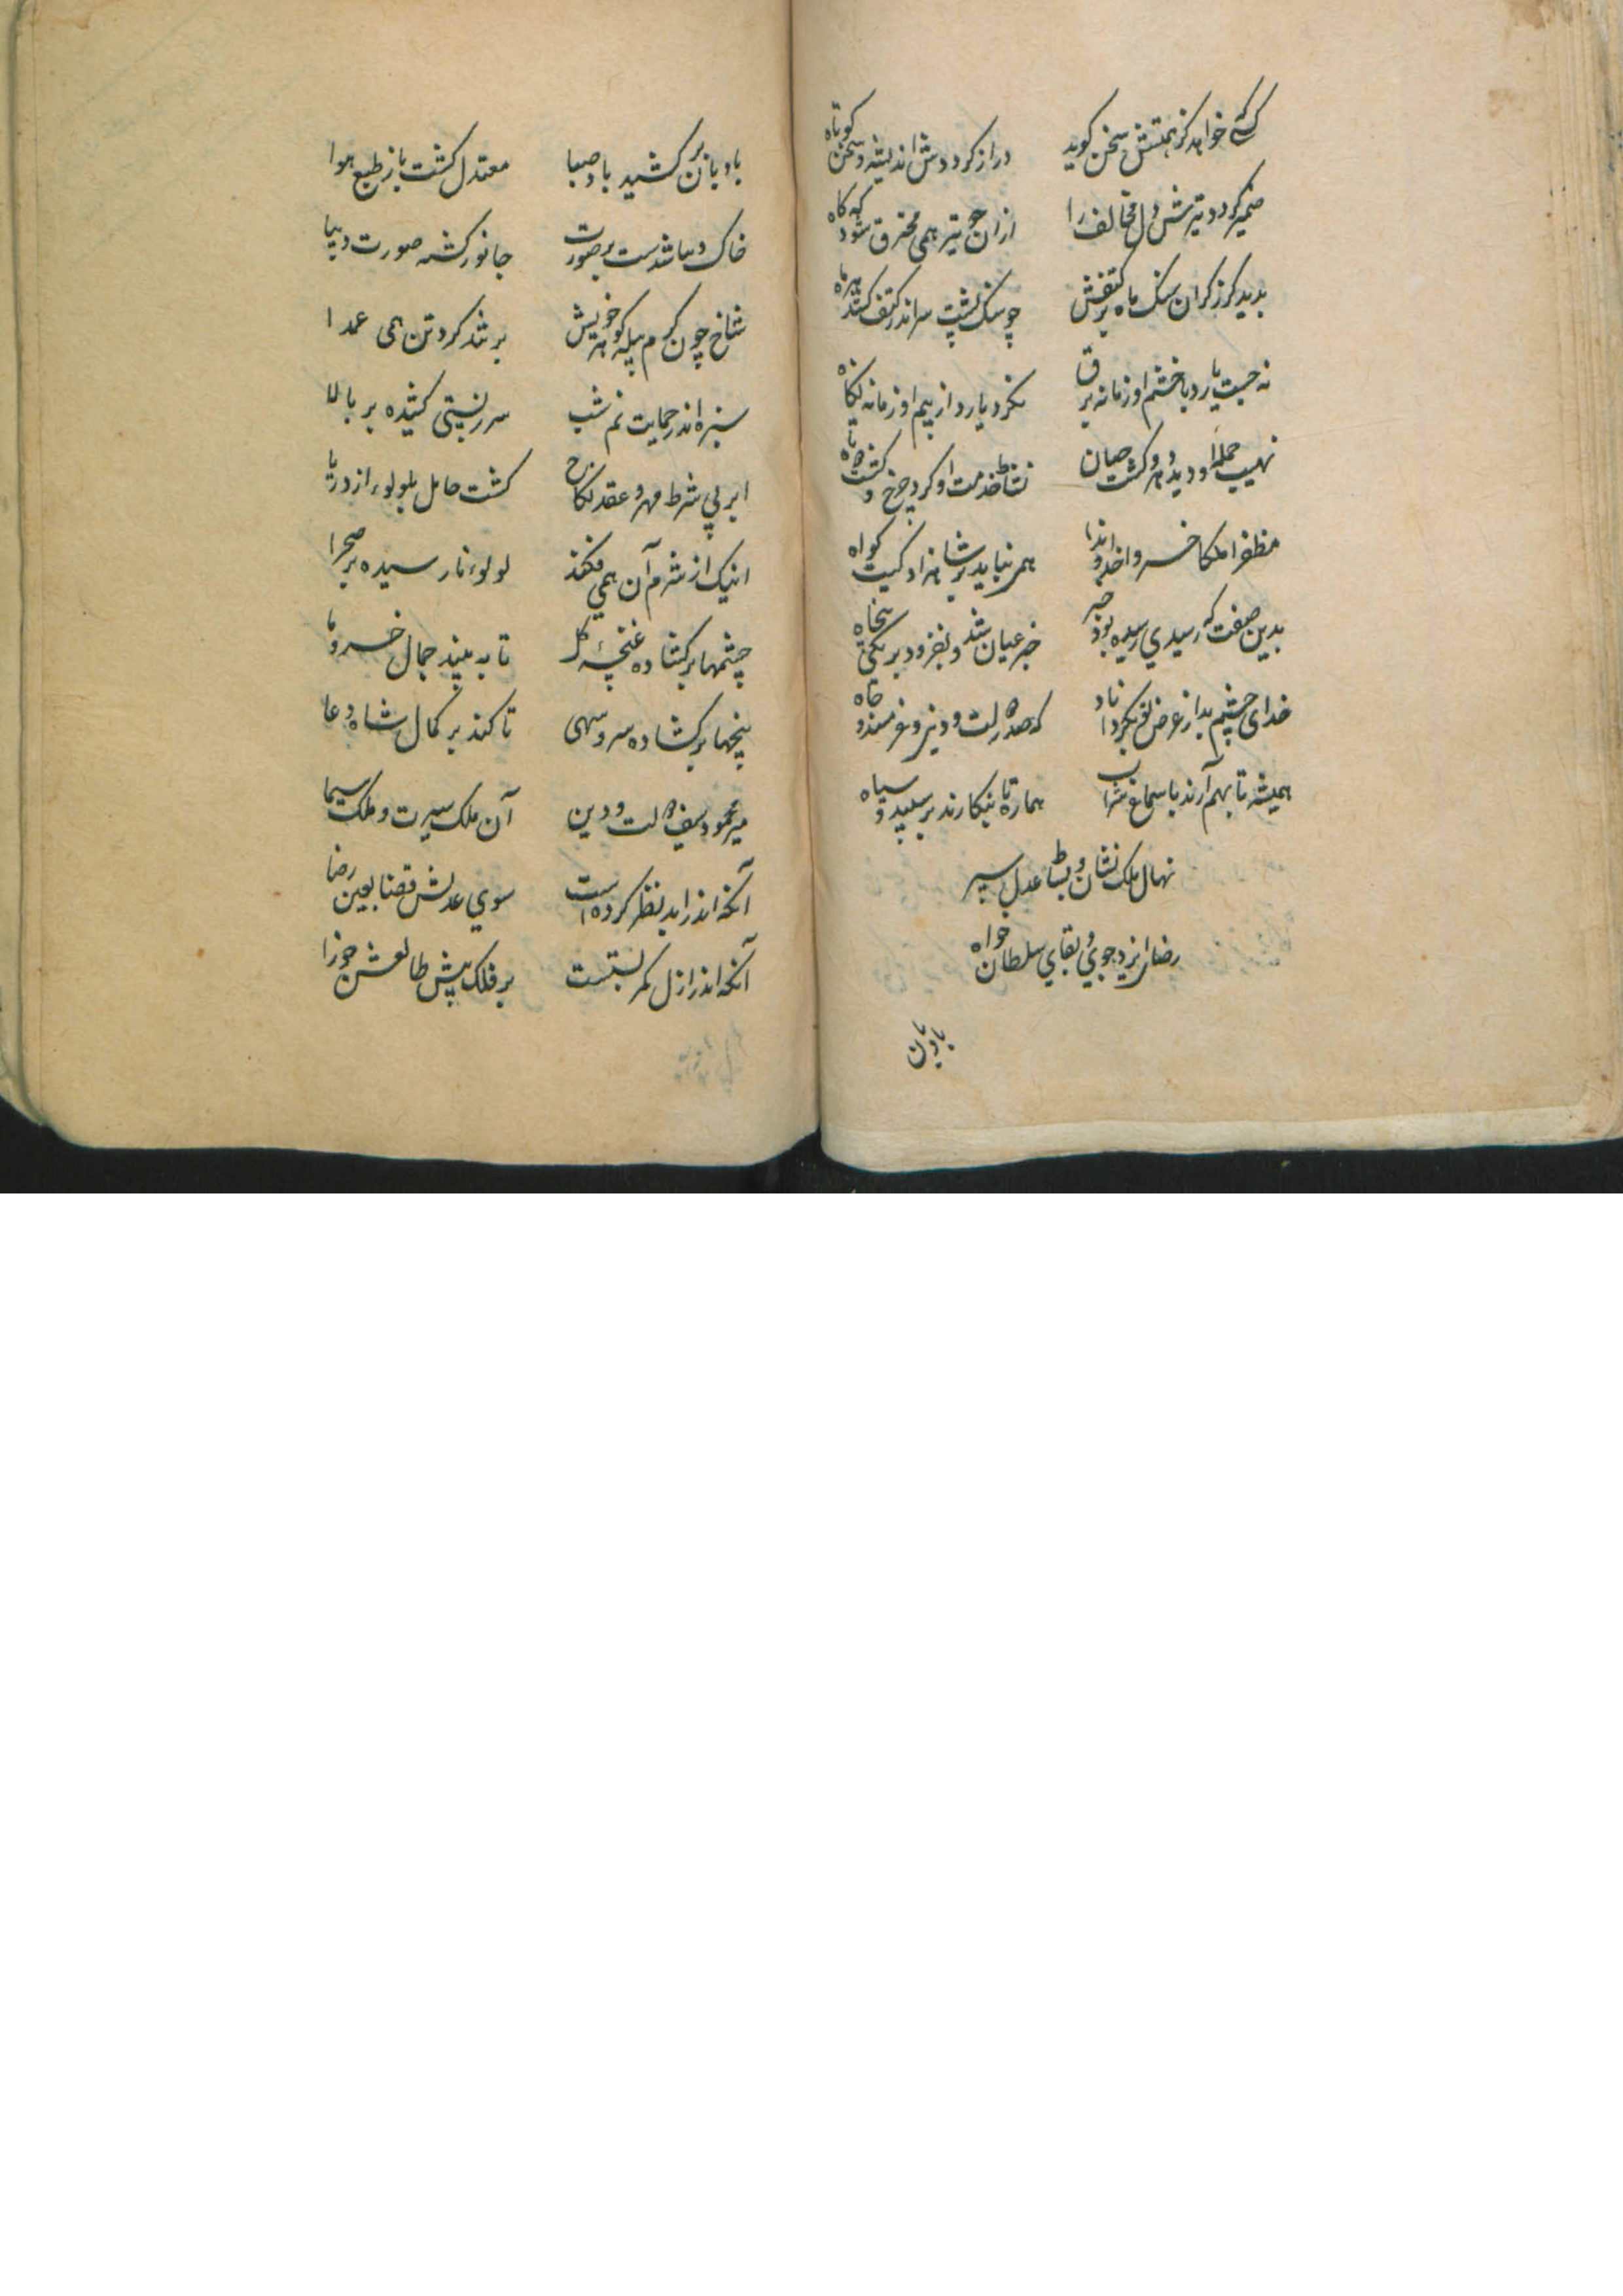 کسی که خواهد کز همتش سخن کوید دراز کردد اندیشه و سخن کوتاه
ضمیر کردد تیرش دل مخالف را از ان چو تیر همی محترق شود که کاه
بدید کرز کران سنک ماه بر کتفش چو سنک پشت سر اندر کتف کشد
نه جست یارد با خشم او زمانه برق نکرد یارد از بیم او زمانه نکاه
نهیب حمله او دید دهر و کشت نشاط خدمت او کرد چرخ و کشت
مظفرا ملکا خسروا خداوندا کواه
بدین صفت که رسیدی رسیده بود خبر خبر عیان شد و بفزود بر یکی پنجاه
خدای چشم بد از عرض تو بکرداناد که صدر دولت و دین و
همیشه تا بهم آرند با سماع شراب هماره تا بنکارند بر سپید و سیاه
نهال ملک نشان و بساط عدل سپر
رضای ایزد جوی و بقای سلطان خواه
بادبان
بادبان بر کشید باد صبا معتدل کشت باز طبع هوا
خاک دیبا شدست بر صورت جانور کشته صورت دیبا
شاخ چون کرم پیله کوهر خویش بر تند کرد تن همی عمدا
سبزه اندر حمایت نم شب سر ز پستی کشیده بر بالا
ابر بی شرط مهر و عقد نکاح کشت حامل بلولوء از دریا
اینک از شرم آن همی فکند لولوء نارسیده بر صحرا
چشمها بر کشاده غنچهٔ کل تا به بیند جمال خسرو ما
پنجها بر کشاده سرو سهی تا کند بر کمال شاه دعا
میر محمود سیف دولت و دین آن ملک سیرت و ملک سیما
آنکه اندر ابد نظر کرده است سوی عدلش قضا بعین رضا
آنکه اندر ازل کمر بستست بر فلک پیش طالعش جوزا